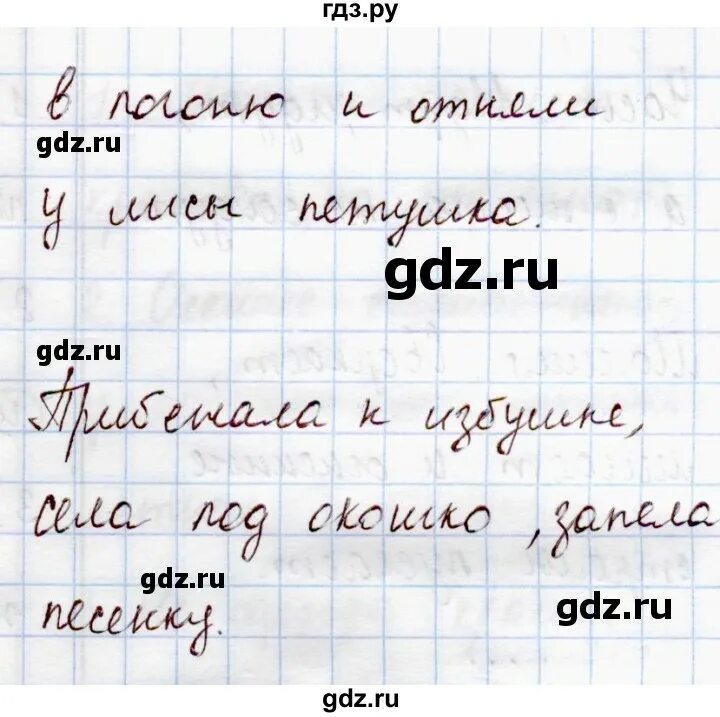 гдз.ру
в погоню и отняли
gdz.ru
у лисы петушка.
gdz.ru
gdz.ru
Прибежала к избушке,
села под окошко, запела
gdz.ru
gdz.ru
песенку.
gdz.ru